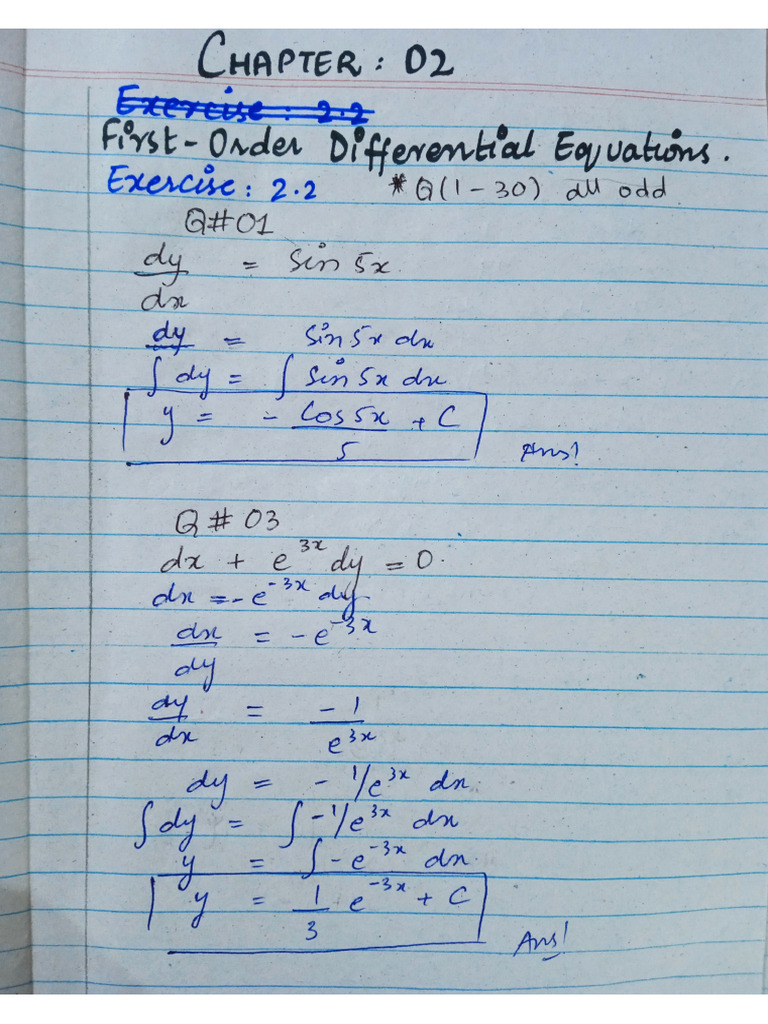 CHAPTER: 02
Exercise: 2.2
First-Order Differential Equations.
Exercise: 2.2 * Q(1-30) all odd
Q#01
dy/dx = Sin 5x.
dy = Sin 5x dx
∫dy = ∫ Sin 5x dx
y = - Cos 5x/5 + C
Ans!
Q # 03
dx + e^3x dy = 0.
dx = -e^-3x dy
dx/dy = -e^-3x
dy/dx = -1/e^3x
dy = -1/e^3x dx.
∫dy = ∫-1/e^3x dx
y = ∫-e^-3x dx.
y = 1/3 e^-3x + C
Ans!